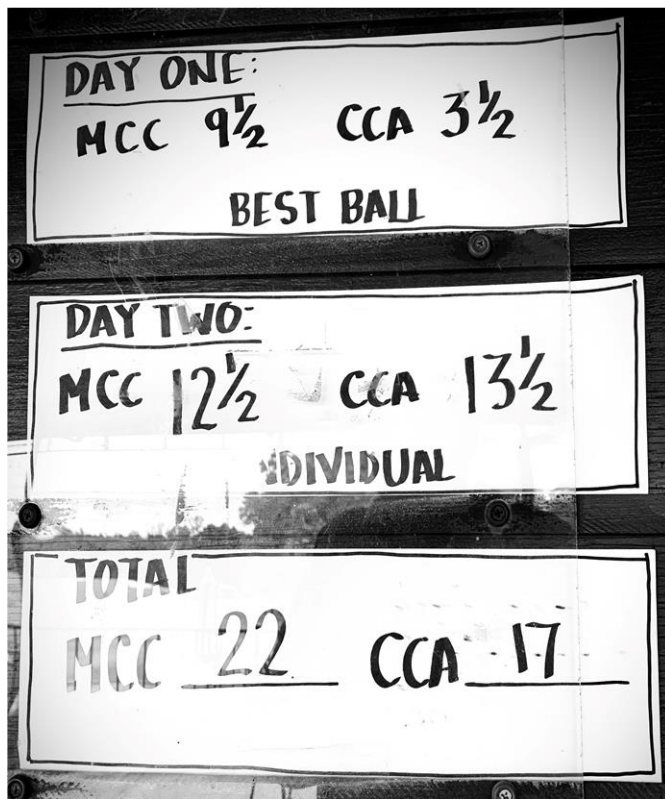 DAY ONE:
MCC 9½ CCA 3½
BEST BALL
DAY TWO:
MCC 12½ CCA 13½
INDIVIDUAL
TOTAL
MCC 22 CCA 17